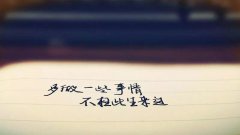 多做一些事情
不枉此生来过